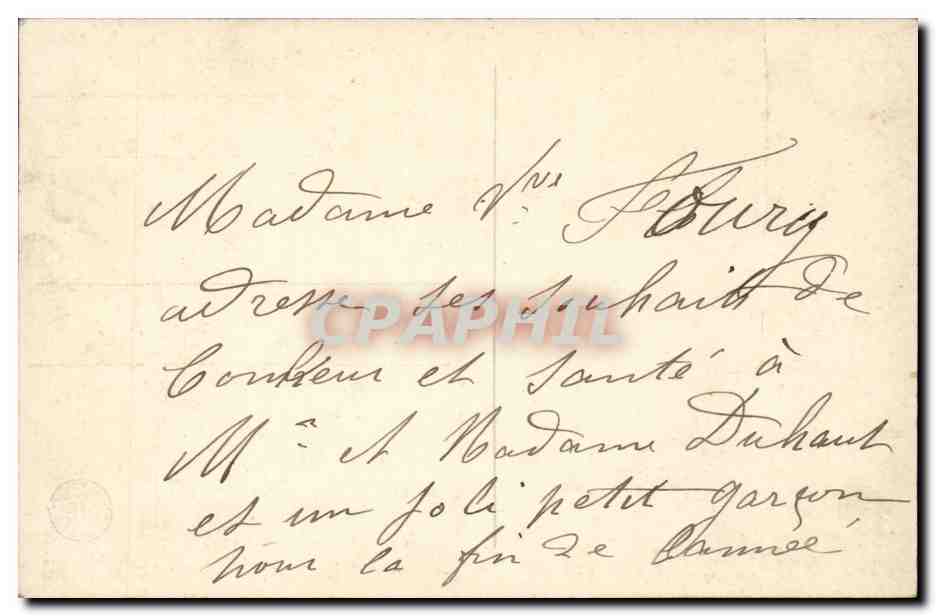 Madame Vve Fleury
adresse ses souhaits de
bonheur et santé à
Mr et Madame Duhaut
et un joli petit garçon
pour la fin de l'année
CPAPHIL